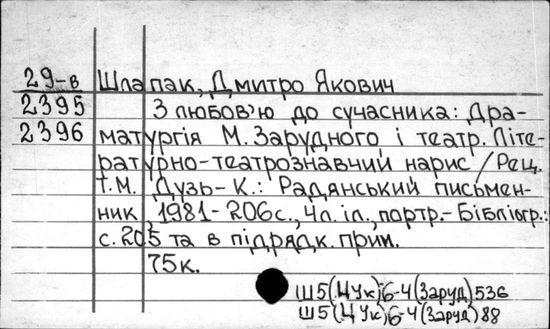 29-в Шлапак, Дмитро Якович
2395 З любов'ю до сучасника: Дра-
2396 матургія М. Зарудного і театр. Літе-
ратурно-театрознавчий нарис /Рец.
Т.М. Дузь- К.: Радянський письмен-
ник, 1981- 206с., 4л. іл., портр.- Бібліогр.:
с. 205 та в підрядк. прим.
75к.
Ш5(Ц Ук)6-4(Заруд)536
Ш5(Ц Ук)6-4(Заруд)88